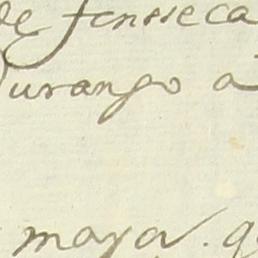 de fonsseca
Durango a
maya. q